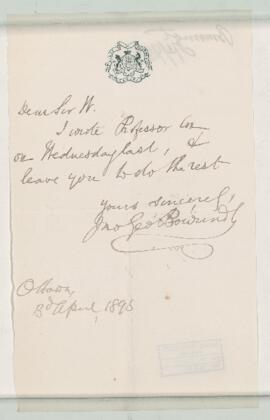 Dear Sir W.
I wrote Professor Cox,
on Wednesday last, &
leave you to do the rest
Yours sincerely,
Jno Geo Bourinot
Ottawa,
3d April, 1895